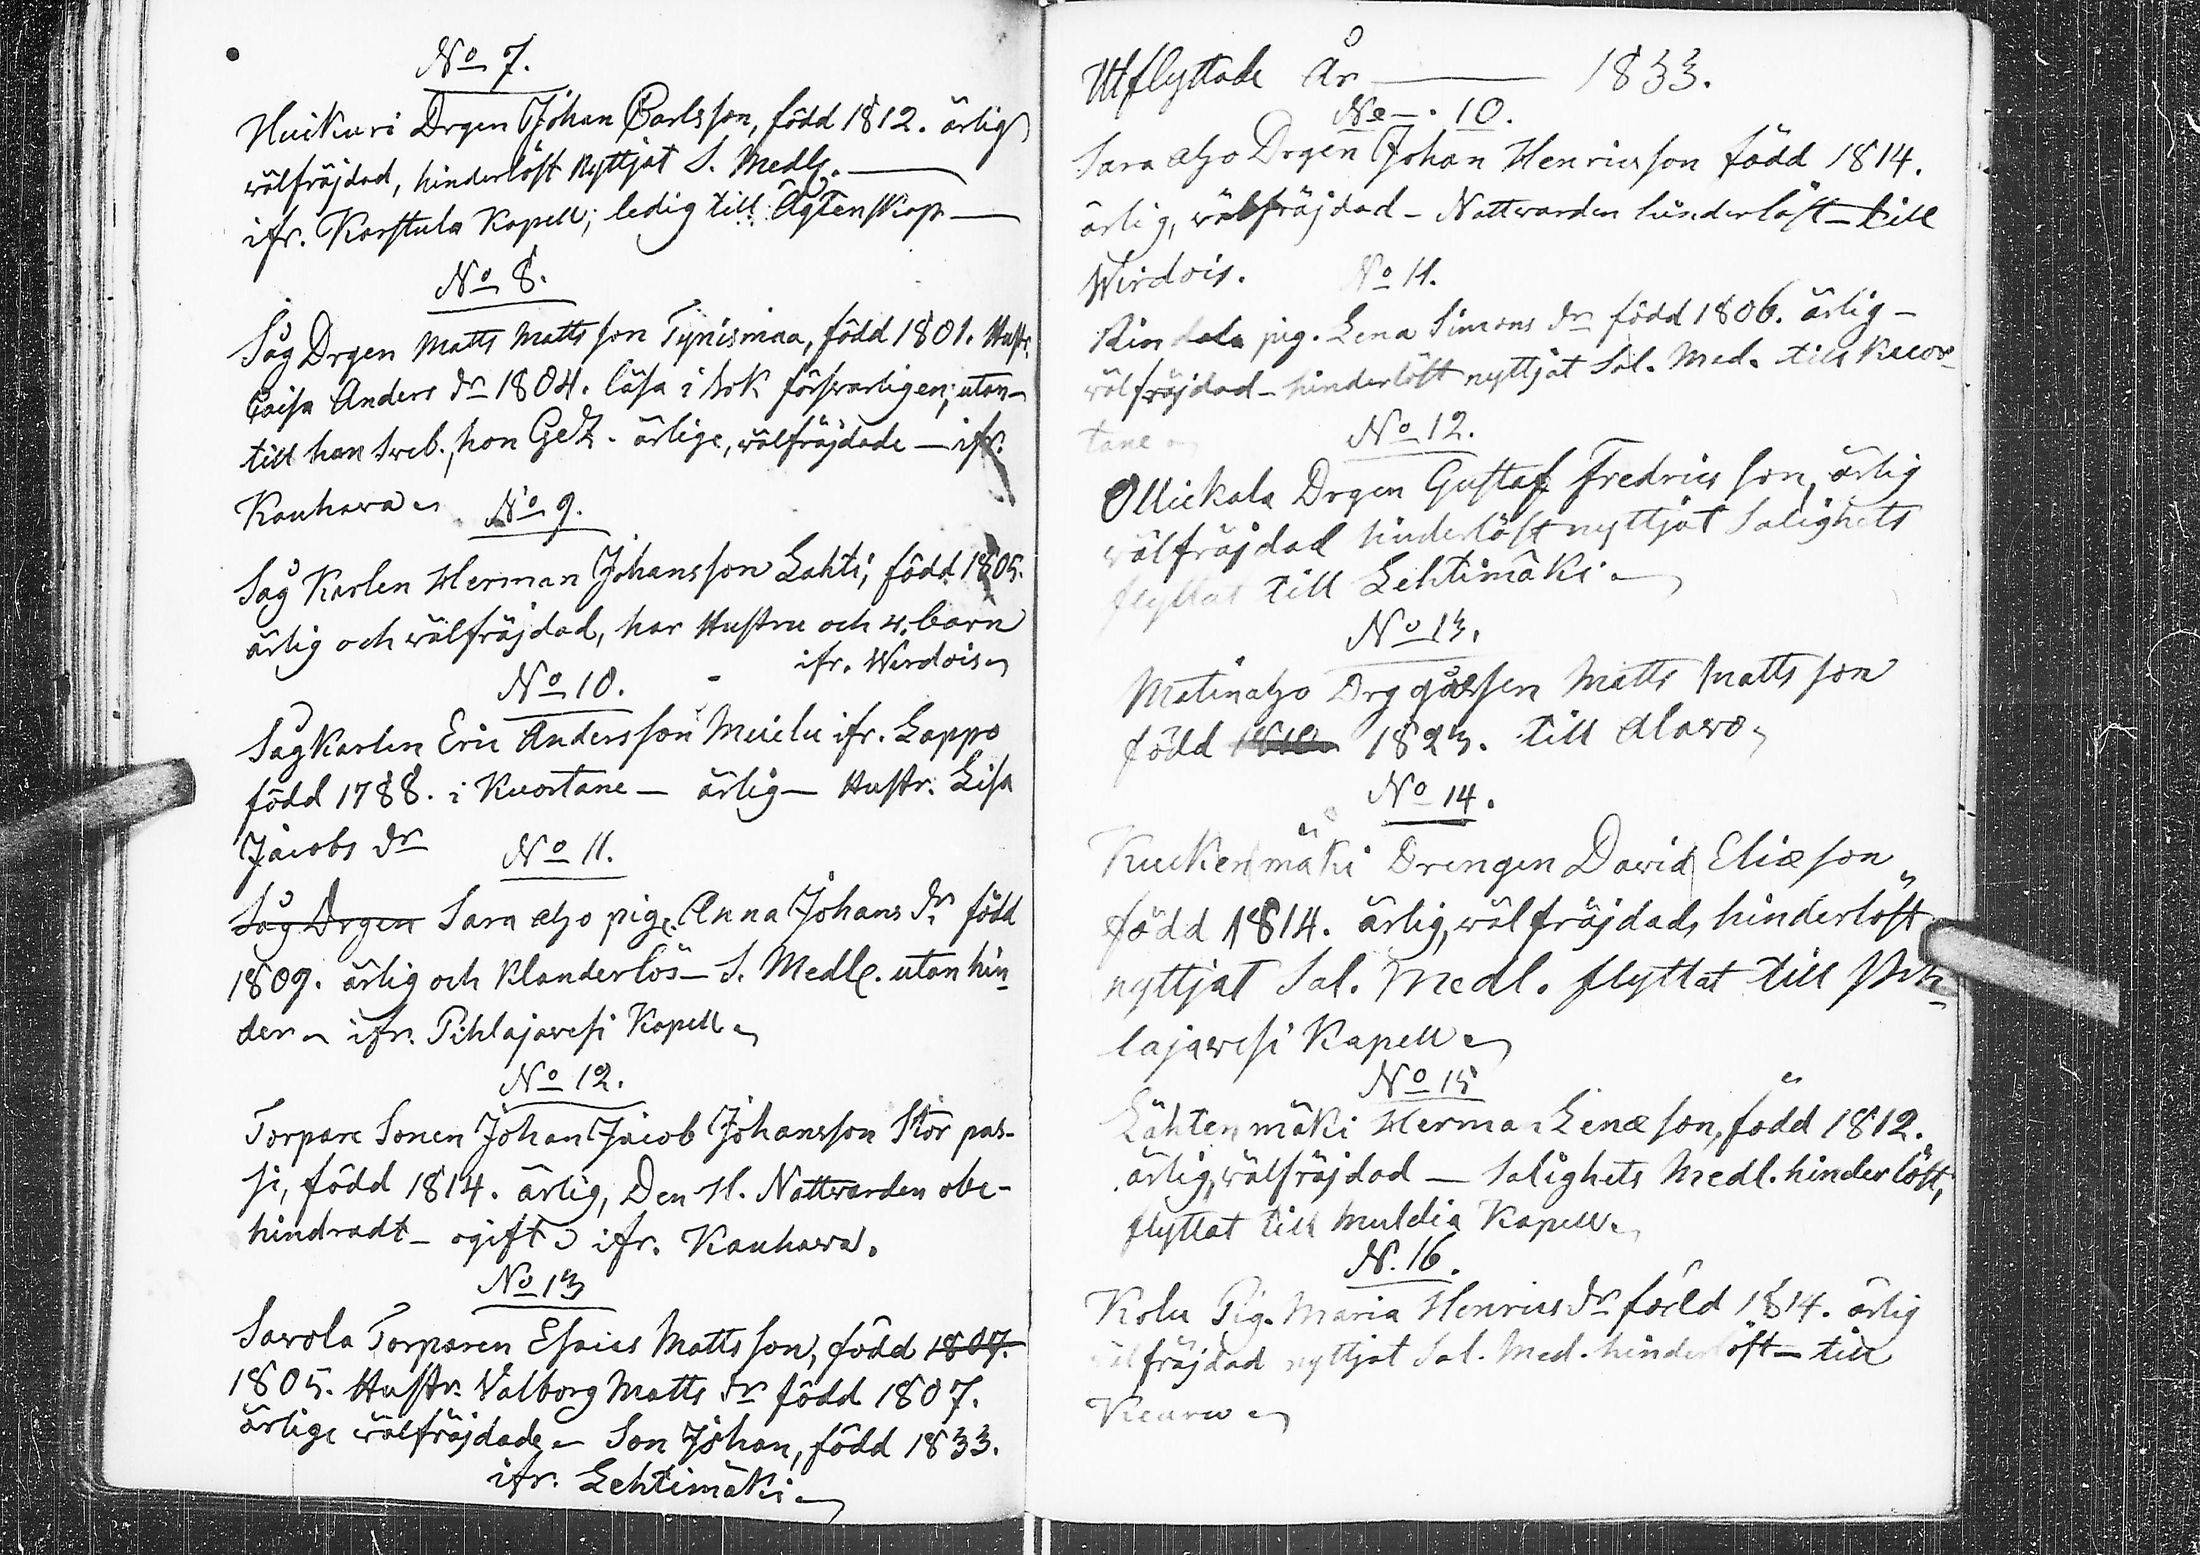 No 7.
Huikuri Drgen Johan Carlsson, född 1812. ärlig
wälfräjdad, hinderlöst nyttjat S. Medl.
ifr. Karstula Kapell; ledig till Ägtenskap
No 8.
Såg Drgen Matts Mattsson Tynismaa, född 1801. Hustr.
Caisa Anders dr 1804. läsa i bok försvarligen; utan-
till han Sveb., hon GeZ. ärlige, wälfräjdade — ifr.
Kauhava
No 9.
Såg Karlen Herman Johansson Lahti, född 1805.
ärlig och wälfräjdad, har Hustru och 4. barn
ifr. Wirdois
No 10.
Såg Karlen Eric Andersson Muilu ifr. Lappo
född 1788. i Kuortane — ärlig — Hustr. Lisa
Jacobs dr
No 11.
Såg Drgen Sara aho pig. Anna Johans dr född
1809. ärlig och Klanderlös — S. Medl. utan hin-
der ifr. Pihlajavesi Kapell
No 12.
Torpare Sonen Johan Jacob Johansson Stor pas-
si, född 1814. ärlig, Den H. Nattvarden obe-
hindradt — ogift ifr. Kauhava.
No 13
Savola Torparen Esaias Mattsson, född 1807.
1805. Hustr. Valborg Matts dr född 1807.
ärlige wälfräjdade — Son Johan, född 1833.
ifr. Lehtimäki
Utflyttade År — 1833.
No 10.
Sara aho Drgen Johan Henricsson född 1814.
ärlig, wälfräjdad — Nattvarden hinderlöst — till
Wirdois.
No 11.
Rindala pig. Lena Simons dr född 1806. ärlig —
wälfräjdad — hinderlöst nyttjat Sal. Med. till Kuor-
tane
No 12.
Ollickala Drgen Gustaf Fredricsson, ärlig
wälfräjdad hinderlöst nyttjat Salighets
flyttat till Lehtimäki
No 13.
Matinaho Drg gåssen Matts Mattsson
född 1823. till Alavo
No 14.
Kuckenmäki Drengen David Eliæson
född 1814. ärlig, wälfräjdad, hinderlöst
nyttjat Sal. Medl. flyttat till Pih-
lajavesi Kapell
No 15
Lähtenmäki Herman Lenæson, född 1812.
ärlig, wälfräjdad — Salighets Medl. hinderlöst,
flyttat till Muldia Kapell
N. 16.
Kolu Pig. Maria Henrics dr född 1814. ärlig
wälfräjdad nyttjat Sal. Med. hinderlöst — till
Keuru